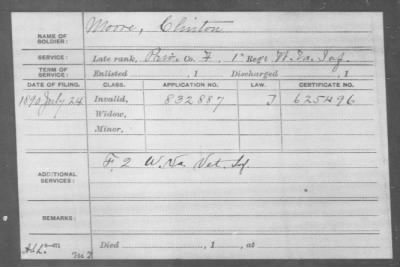 NAME OF SOLDIER: Moore, Clinton
SERVICE: Late rank, Priv. Co. F, 1st Reg't W. Va. Inf.
TERM OF SERVICE: Enlisted , 1 Discharged , 1
DATE OF FILING. CLASS. APPLICATION NO. LAW. CERTIFICATE NO.
1890 July 24 Invalid, 832887 J 625496
Widow,
Minor,
ADDITIONAL SERVICES: F. 2 W. Va. Vet. Inf.
REMARKS:
Died , 1 , at